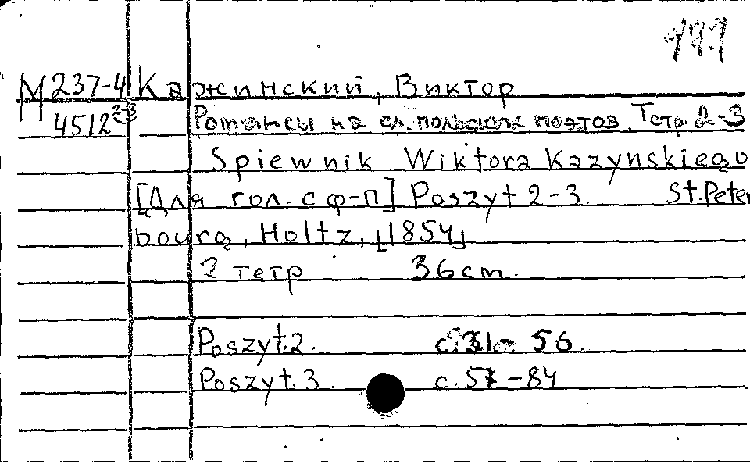 М 237-4 Кажинский, Виктор
4512 2-3 Романсы на сл. польских поэтов. Тетр. 2-3
Spiewnik Wiktora Kazynskiego
[Для гол. с ф-п] Poszyt 2-3. St. Peter
bourg, Holtz, [1854]
2 тетр 36 cm.
Poszyt. 2. c. 31 - 56.
Poszyt. 3. c. 57 - 84